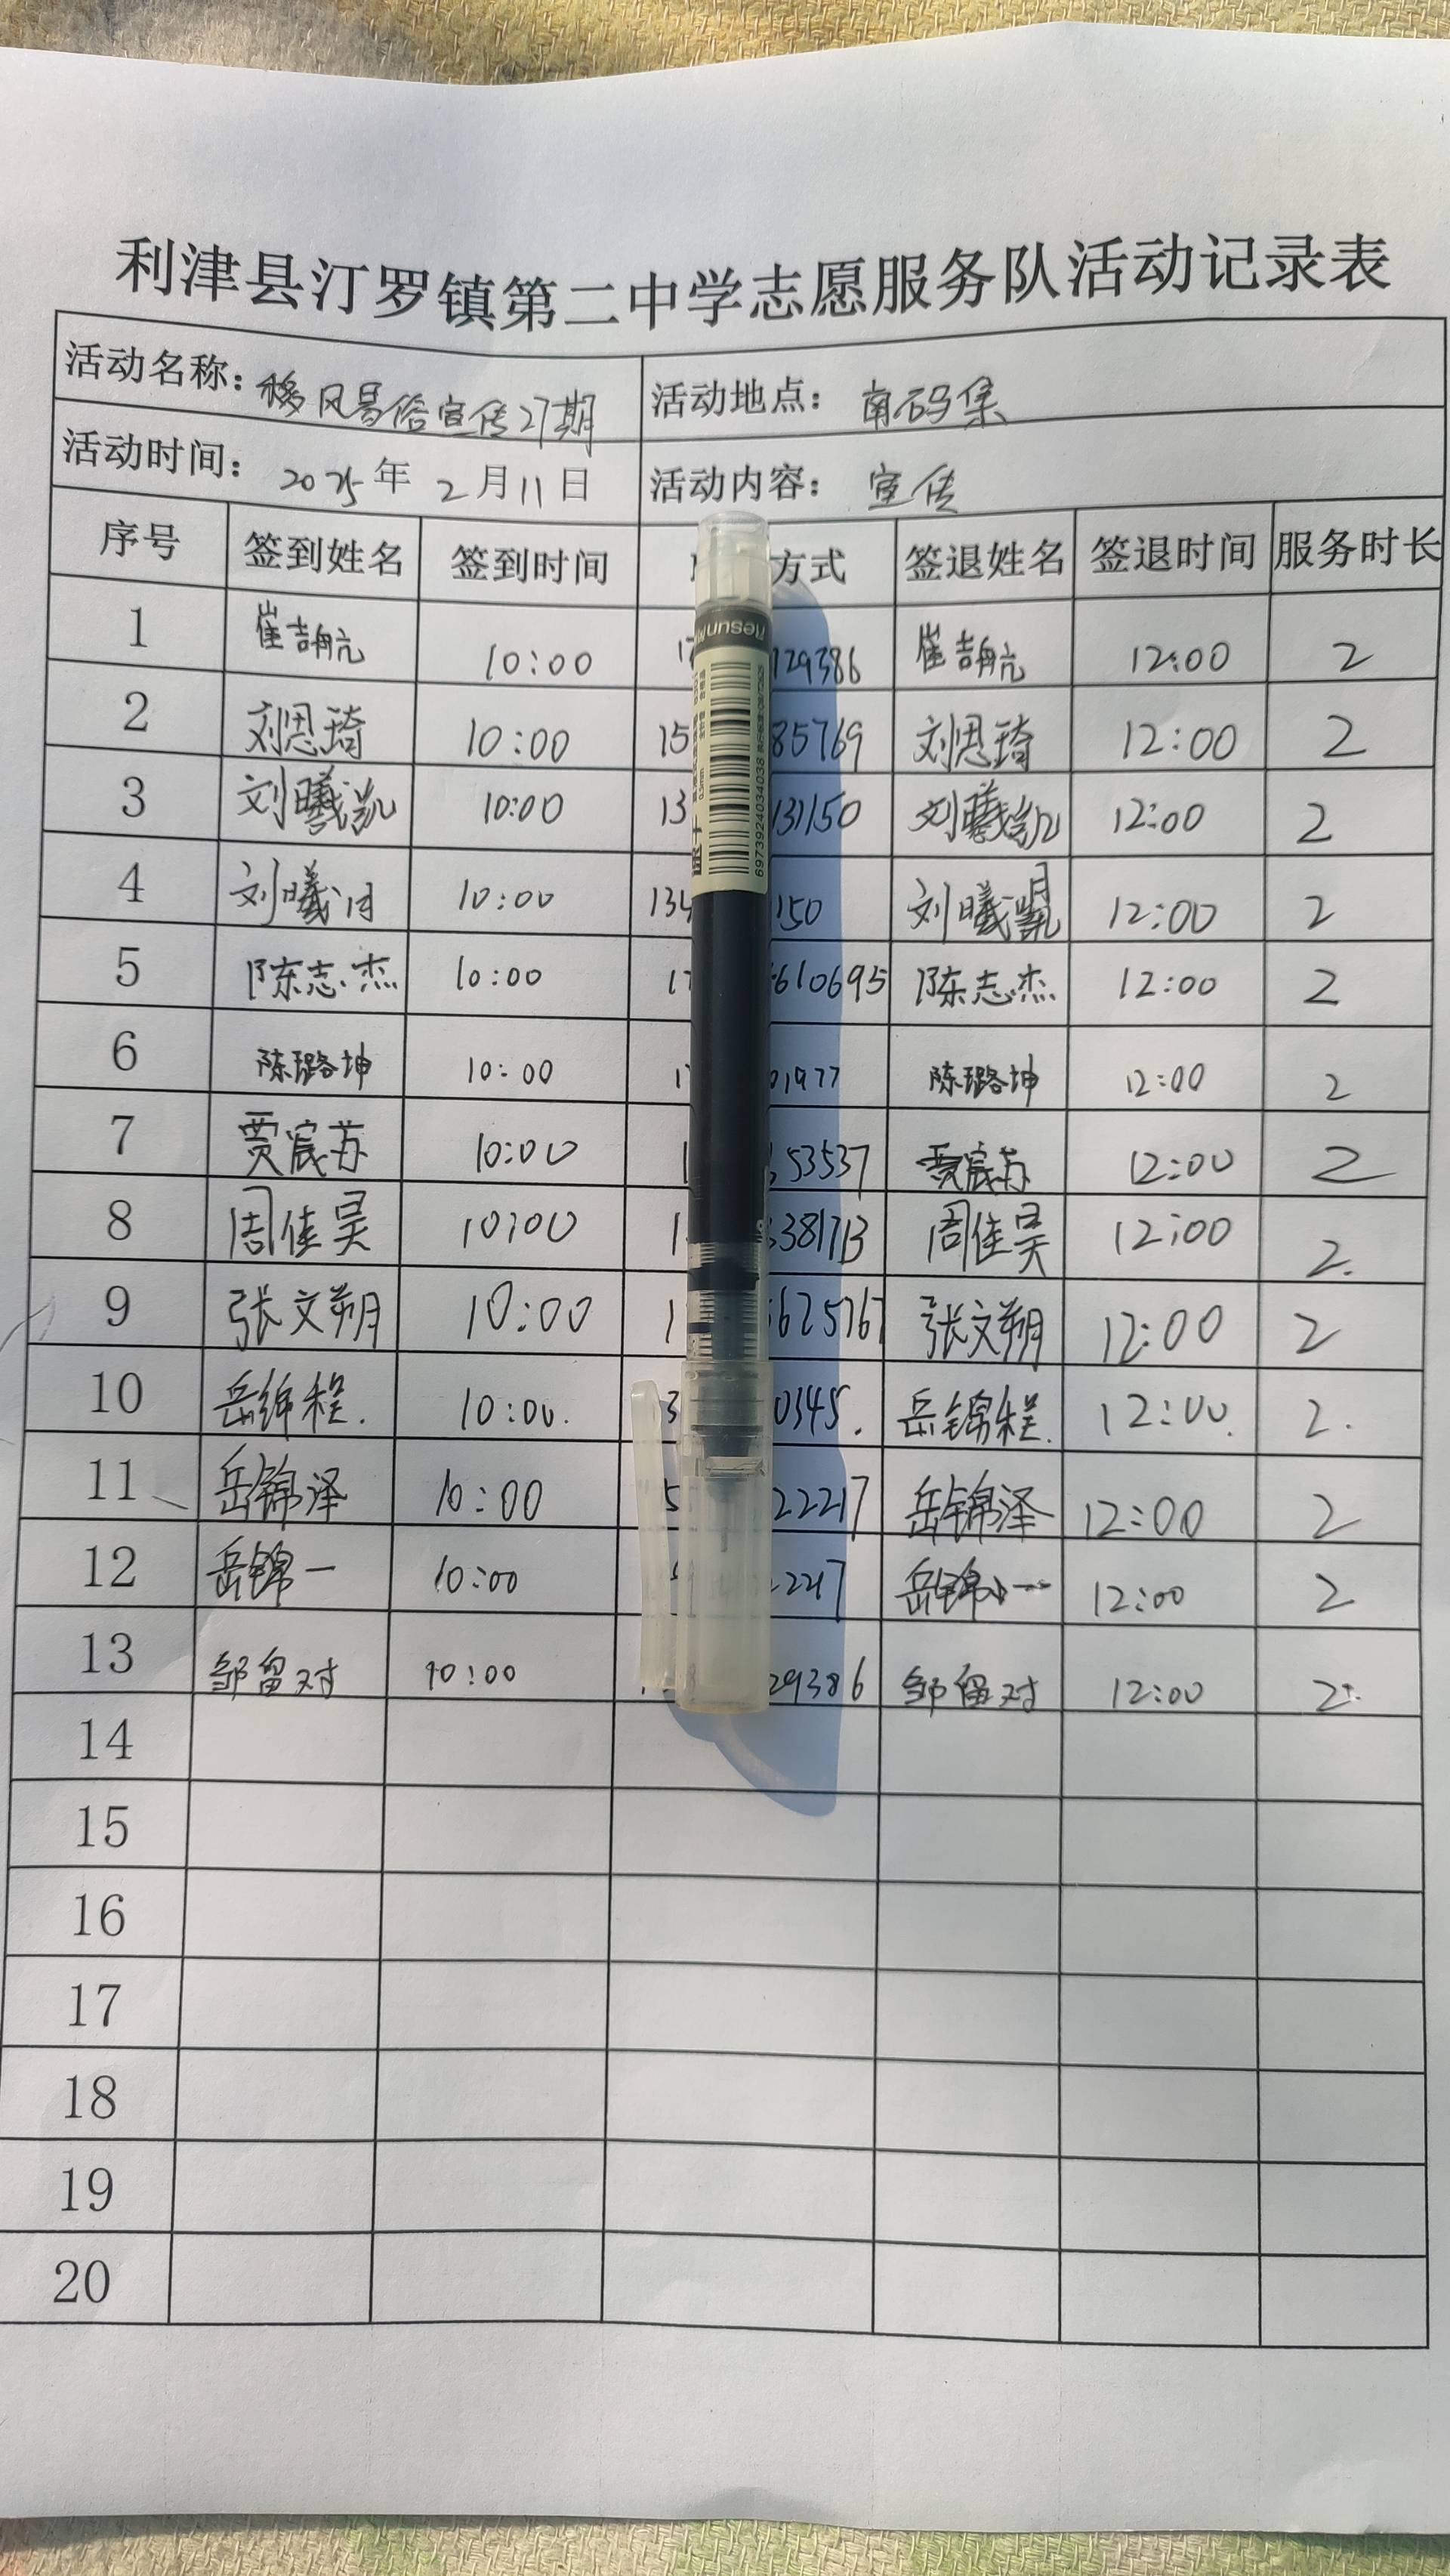 利津县汀罗镇第二中学志愿服务队活动记录表
活动名称：移风易俗宣传27期 活动地点：南码集
活动时间：2025年2月11日 活动内容：宣传
序号 签到姓名 签到时间 方式 签退姓名 签退时间 服务时长
1 崔吉航 10:00 17 129386 崔吉航 12:00 2
2 刘思琦 10:00 15 85769 刘思琦 12:00 2
3 刘曦凯 10:00 13 131150 刘曦凯 12:00 2
4 刘曦 10:00 134 150 刘曦 12:00 2
5 陈志杰 10:00 17 6610695 陈志杰 12:00 2
6 陈璐坤 10:00 17 01977 陈璐坤 12:00 2
7 贾宸苏 10:00 1 53537 贾宸苏 12:00 2
8 周佳昊 10:00 1 381713 周佳昊 12:00 2.
9 张文朔 10:00 1 625767 张文朔 12:00 2
10 岳锦程. 10:00. 3 0345. 岳锦程. 12:00. 2.
11 岳锦泽 10:00 5 22217 岳锦泽 12:00 2
12 岳锦一 10:00 2217 岳锦一 12:00 2
13 邹留对 10:00 29386 邹留对 12:00 2.
14
15
16
17
18
19
20
0.5mm
6973924034038